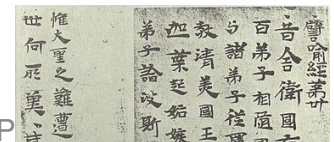 譬喻經苐廿
昔舍衛國
百弟子相隨國
与諸弟子從
教清美國王
迦葉起妬嫉
弟子諭波斯
惟大聖之難遭
世何所冀
P